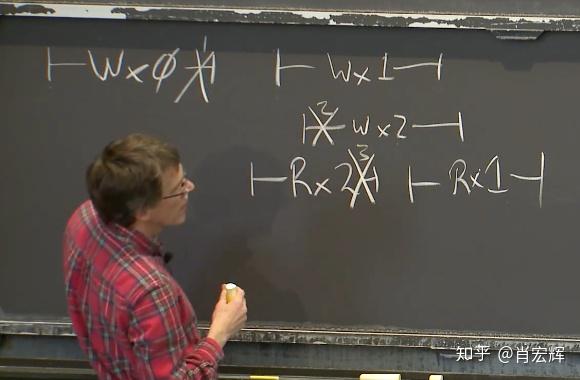 |-Wxφ-| 1 |-Wx1-|
|-Wx2-| 2
|-Rx2-| 3 |-Rx1-|
知乎 @肖宏辉